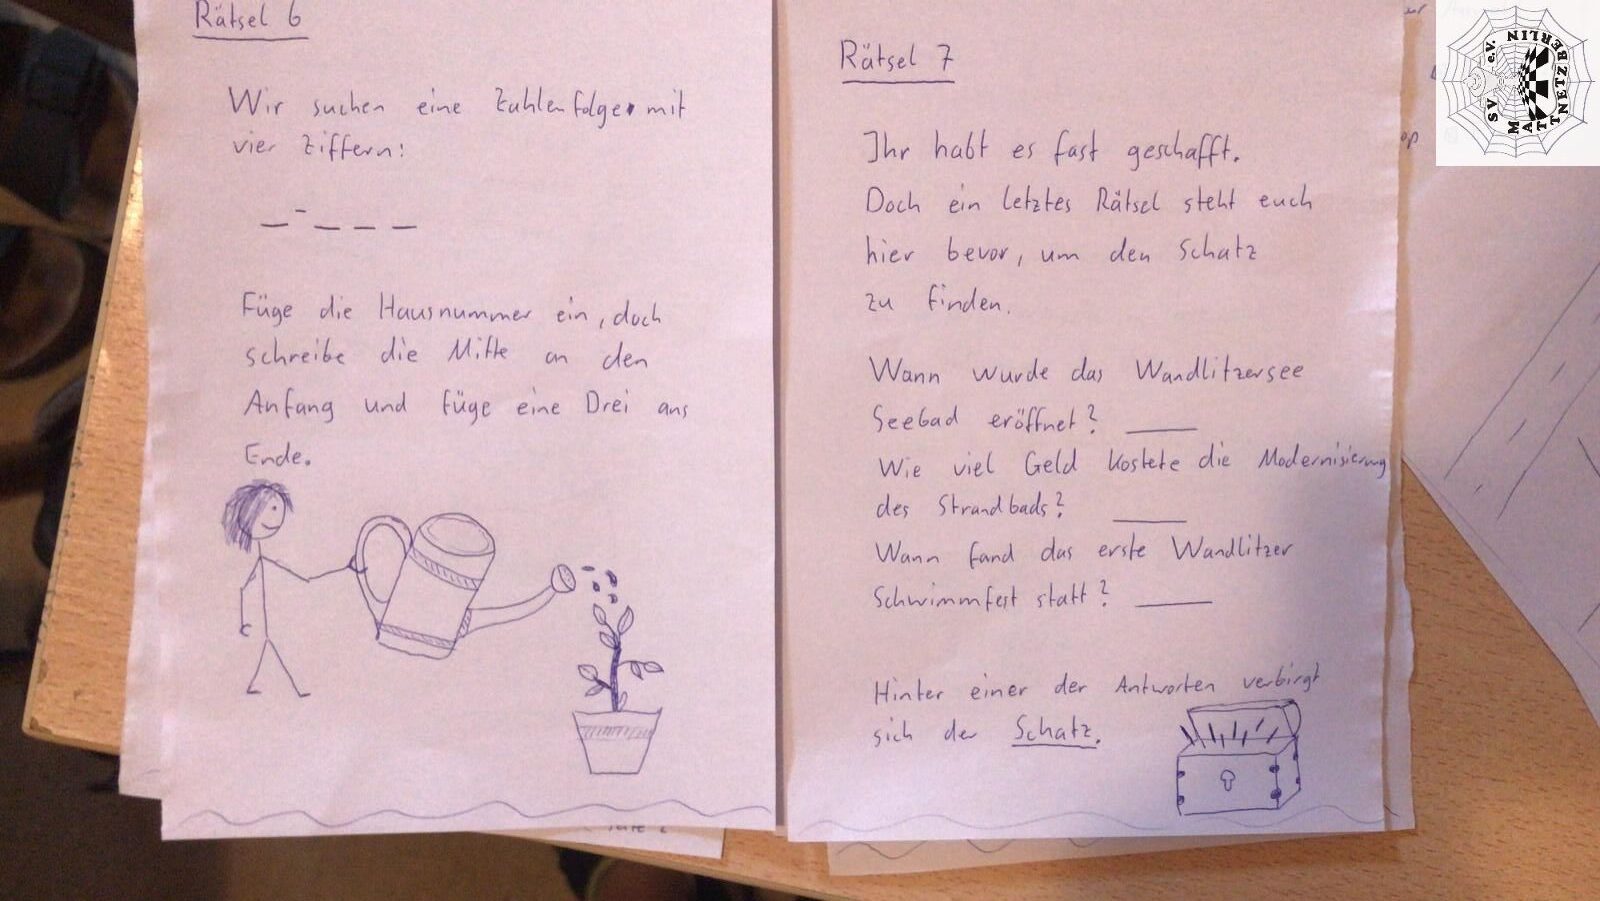 Rätsel 6
Wir suchen eine Zahlenfolge mit
vier Ziffern:
Füge die Hausnummer ein, doch
schreibe die Mitte an den
Anfang und füge eine Drei ans
Ende.
Rätsel 7
Ihr habt es fast geschafft.
Doch ein letztes Rätsel steht euch
hier bevor, um den Schatz
zu finden.
Wann wurde das Wandlitzersee
Seebad eröffnet?
Wie viel Geld kostete die Modernisierung
des Strandbads?
Wann fand das erste Wandlitzer
Schwimmfest statt?
Hinter einer der Antworten verbirgt
sich der Schatz.
SV MATTNETZ BERLIN e.V.